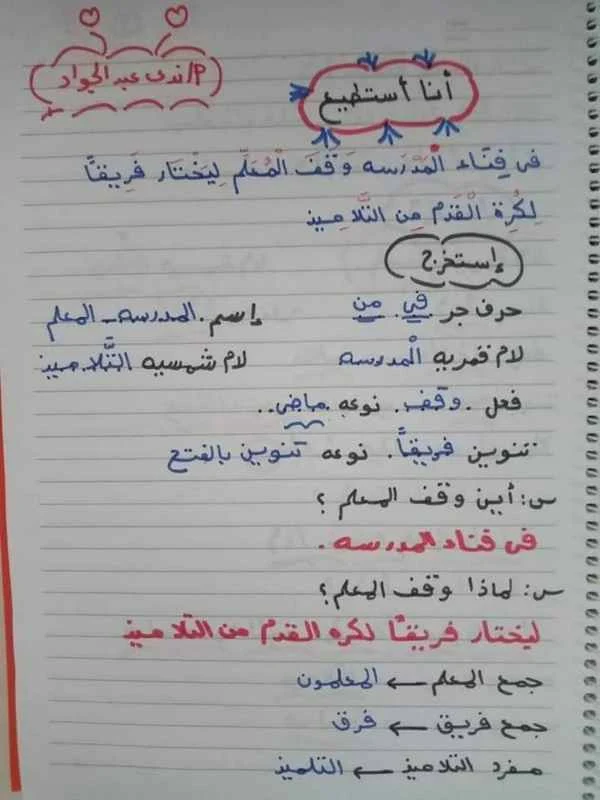 P/ندى عبد الجواد
أنا أستطيع
فى فِنَاء الْمَدْرَسه وَقَفَ الْمُعَلِّم لِيَخْتَار فَرِيقاً
لِكُرة الْقَدَم مِن التَّلَاميذ
إستخرج
حرف جر في. من إسم. المدرسه - المعلم
لام قمريه الْمدرسه لام شمسيه التَّلاميذ
فعل. وقف. نوعه. ماضى..
تنوين فريقاً. نوعه تنوين بالفتح
س: أين وقف المعلم؟
فى فناء المدرسه.
س: لماذا وقف المعلم؟
ليختار فريقاً لكره القدم من التلاميذ
جمع المعلم ← المعلمون
جمع فريق ← فرق
مفرد التلاميذ ← التلميذ